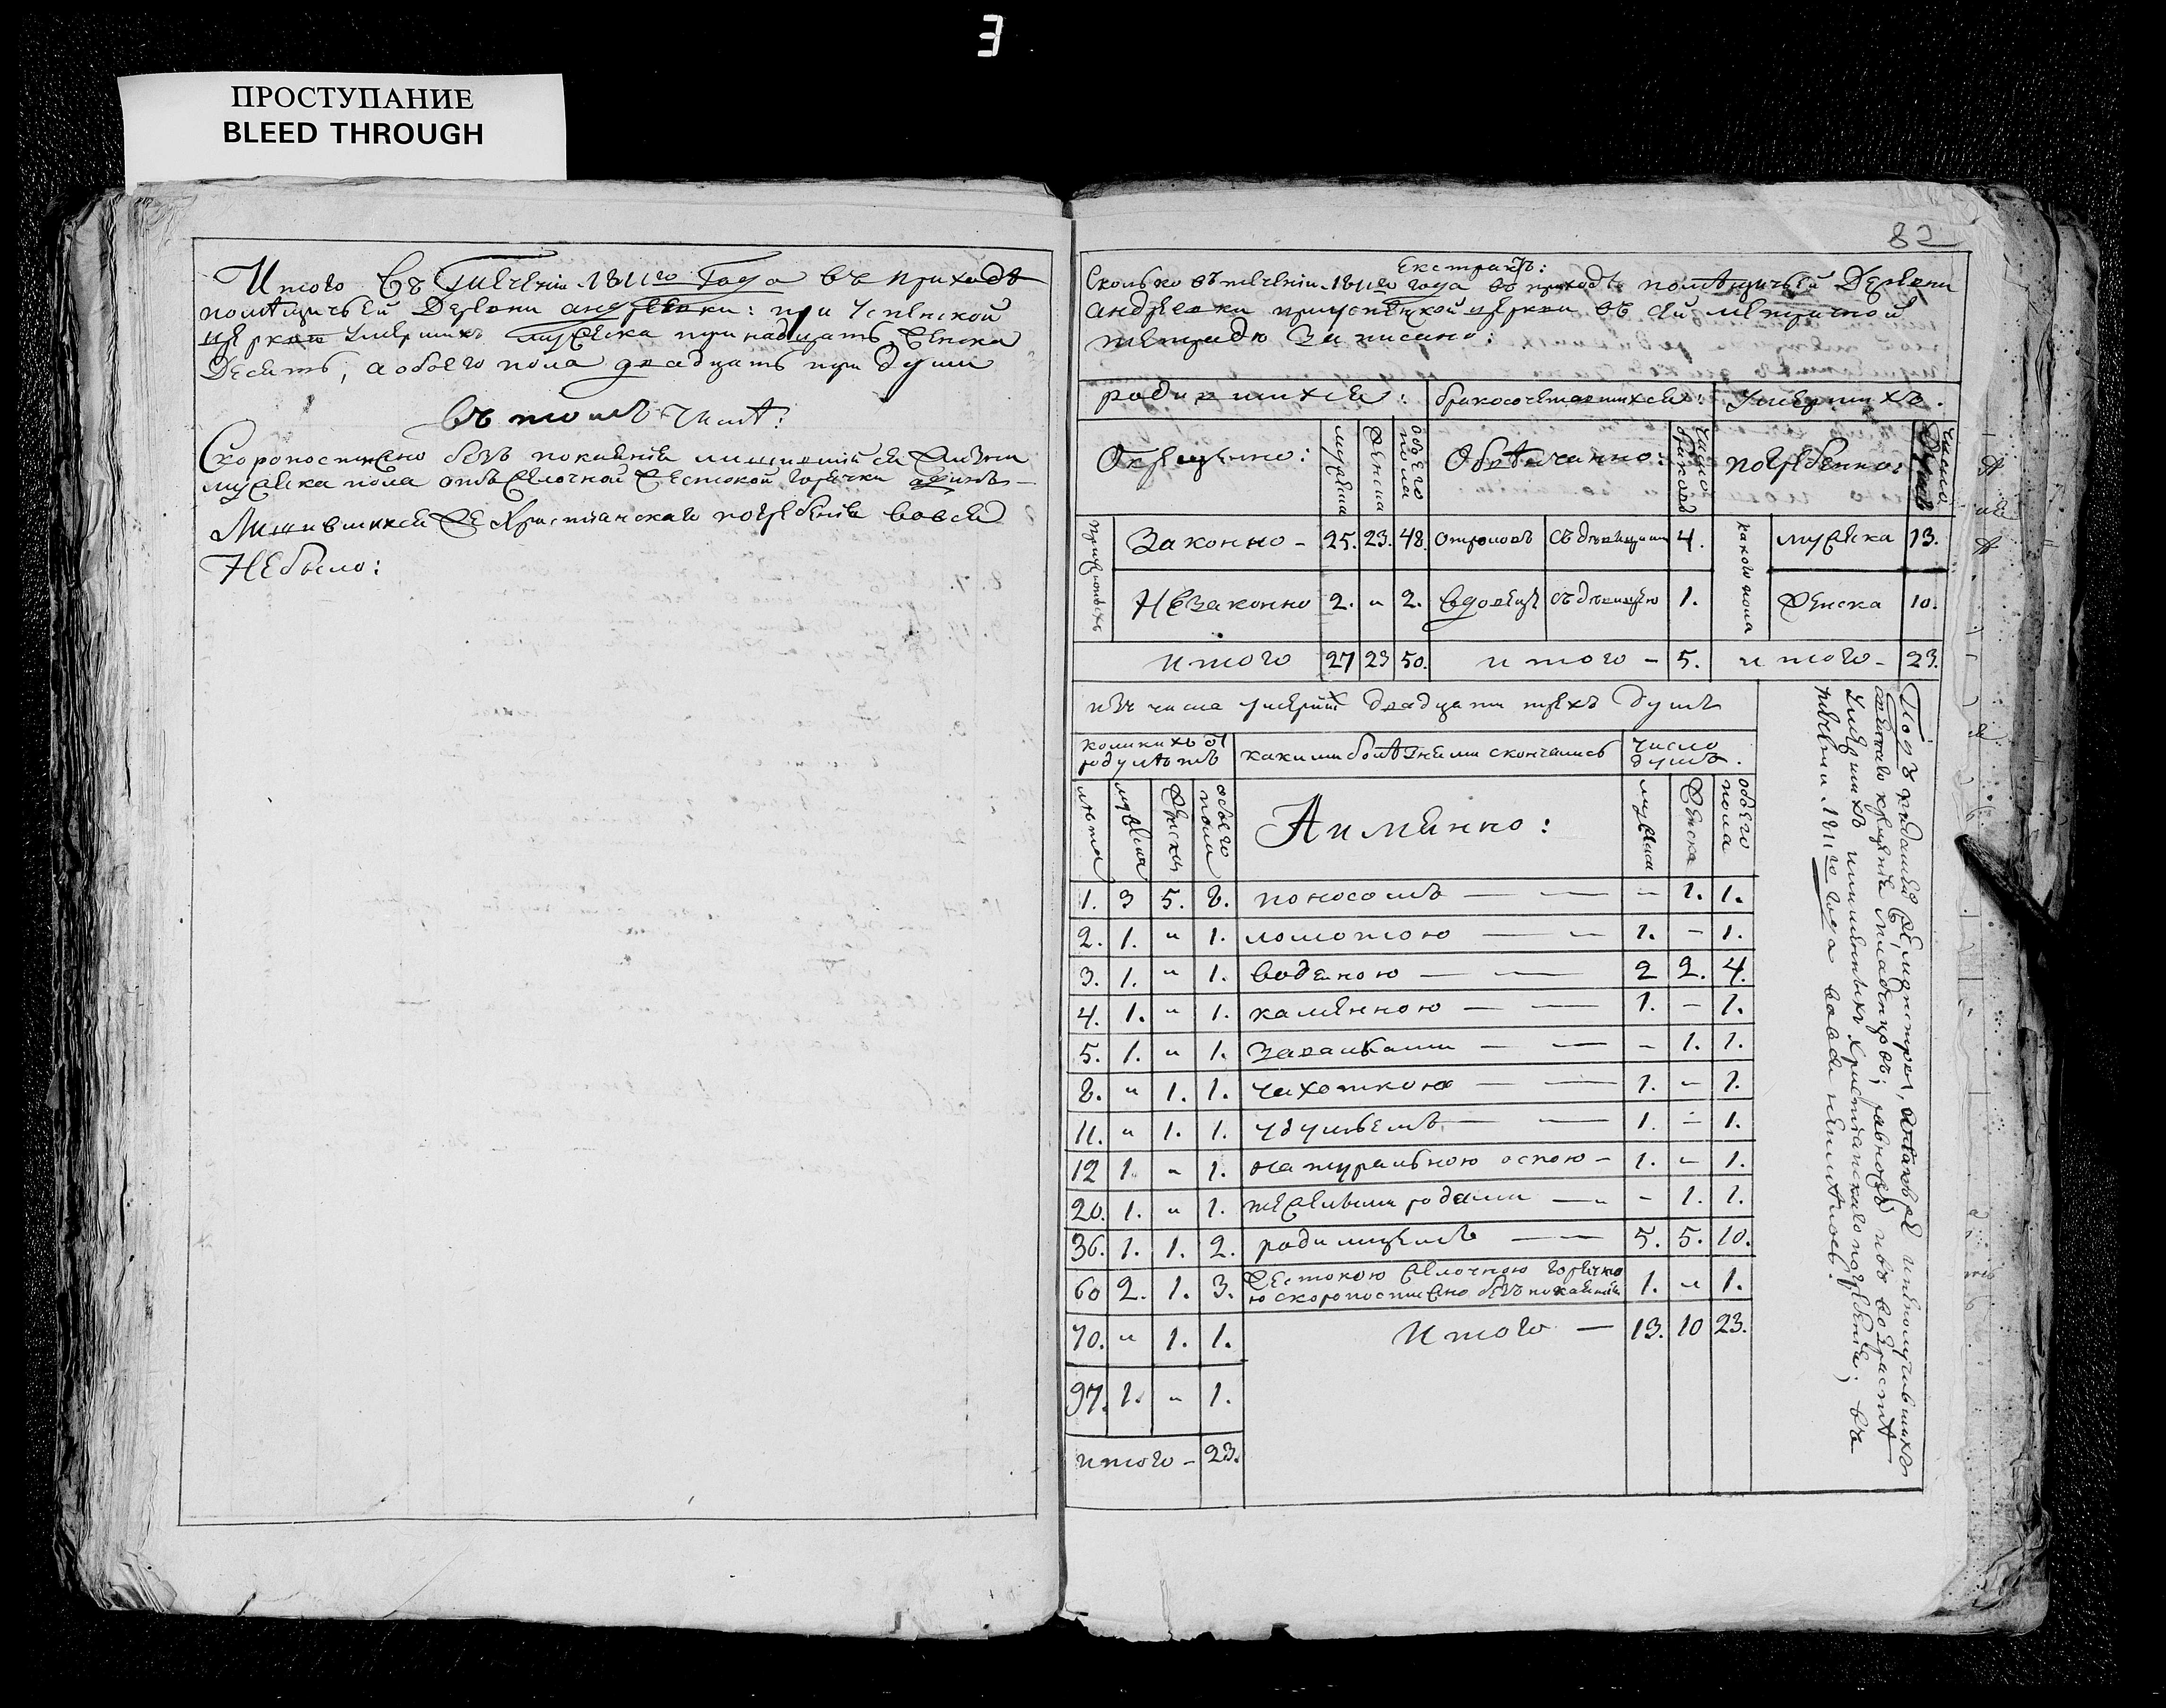 E
ПРОСТУПАНИЕ
BLEED THROUGH
Итого Въ Течении 1811го Года въ приходѣ
помѣщичьей Деревни андреевки: при Успенской
церкви Умершихъ мужеска тринадцать, женска
Десять, а обоего пола двадцать три души
Въ томъ числѣ:
Скоропостижно безъ покаянія лишившійся жизни
мужеска пола отъ желочной жестокой горячки одинъ —
Лишившихся же Христианскаго погребенія вовсе
Небыло:
82
Екстрактъ:
Сколько въ течении 1811го года въ приходѣ помѣщичьей Деревни
андреевки приуспенской церкви въ сей метричной
тетрадѣ Записано:
родившихся: бракосочетавшихся: Умершихъ.
Окрещенно: мужеска женска обоего пола Обвѣнчанно: число браковъ погребенно: число душъ
Законно - 25. 23. 48. отроковъ съ дѣвицами 4. какого пола мужеска 13.
Незаконно 2. " 2. вдовецъ съ дѣвицею 1. женска 10.
итого 27 23 50. итого - 5. итого - 23.
изъ числа умерших двадцати трехъ душъ
коликихъ от роду лѣтъ какими болѣзнями скончались число душъ.
лѣта мужеска женска обоего пола Аименно: мужеска женска обоего пола
1. 3 5. 8. поносомъ — — - 1. 1.
2. 1. " 1. ломотою — — 1. - 1.
3. 1. " 1. воденою — — 2 2. 4.
4. 1. " 1. каменною — — 1. - 1.
5. 1. " 1. завалками — — - 1. 1.
8. " 1. 1. чахоткою — — 1. - 1.
11. " 1. 1. удушьемъ — — 1. - 1.
12 1. " 1. натуральною оспою - 1. - 1.
20. 1. " 1. тяжелыми родами — - 1. 1.
36. 1. 1. 2. родимцемъ — — 5. 5. 10.
60 2. 1. 3. жестокою желочною горячко
ю скоропостижно безъ покаянія 1. " 1.
70. " 1. 1. Итого — 13. 10 23.
97. 1. " 1.
итого - 23.
крещенія младенцовъ; равно изъ возрасте
Умершихъ и лишенныхъ христианскаго погребенія; въ
течении 1811го года вовсе неимѣлось.